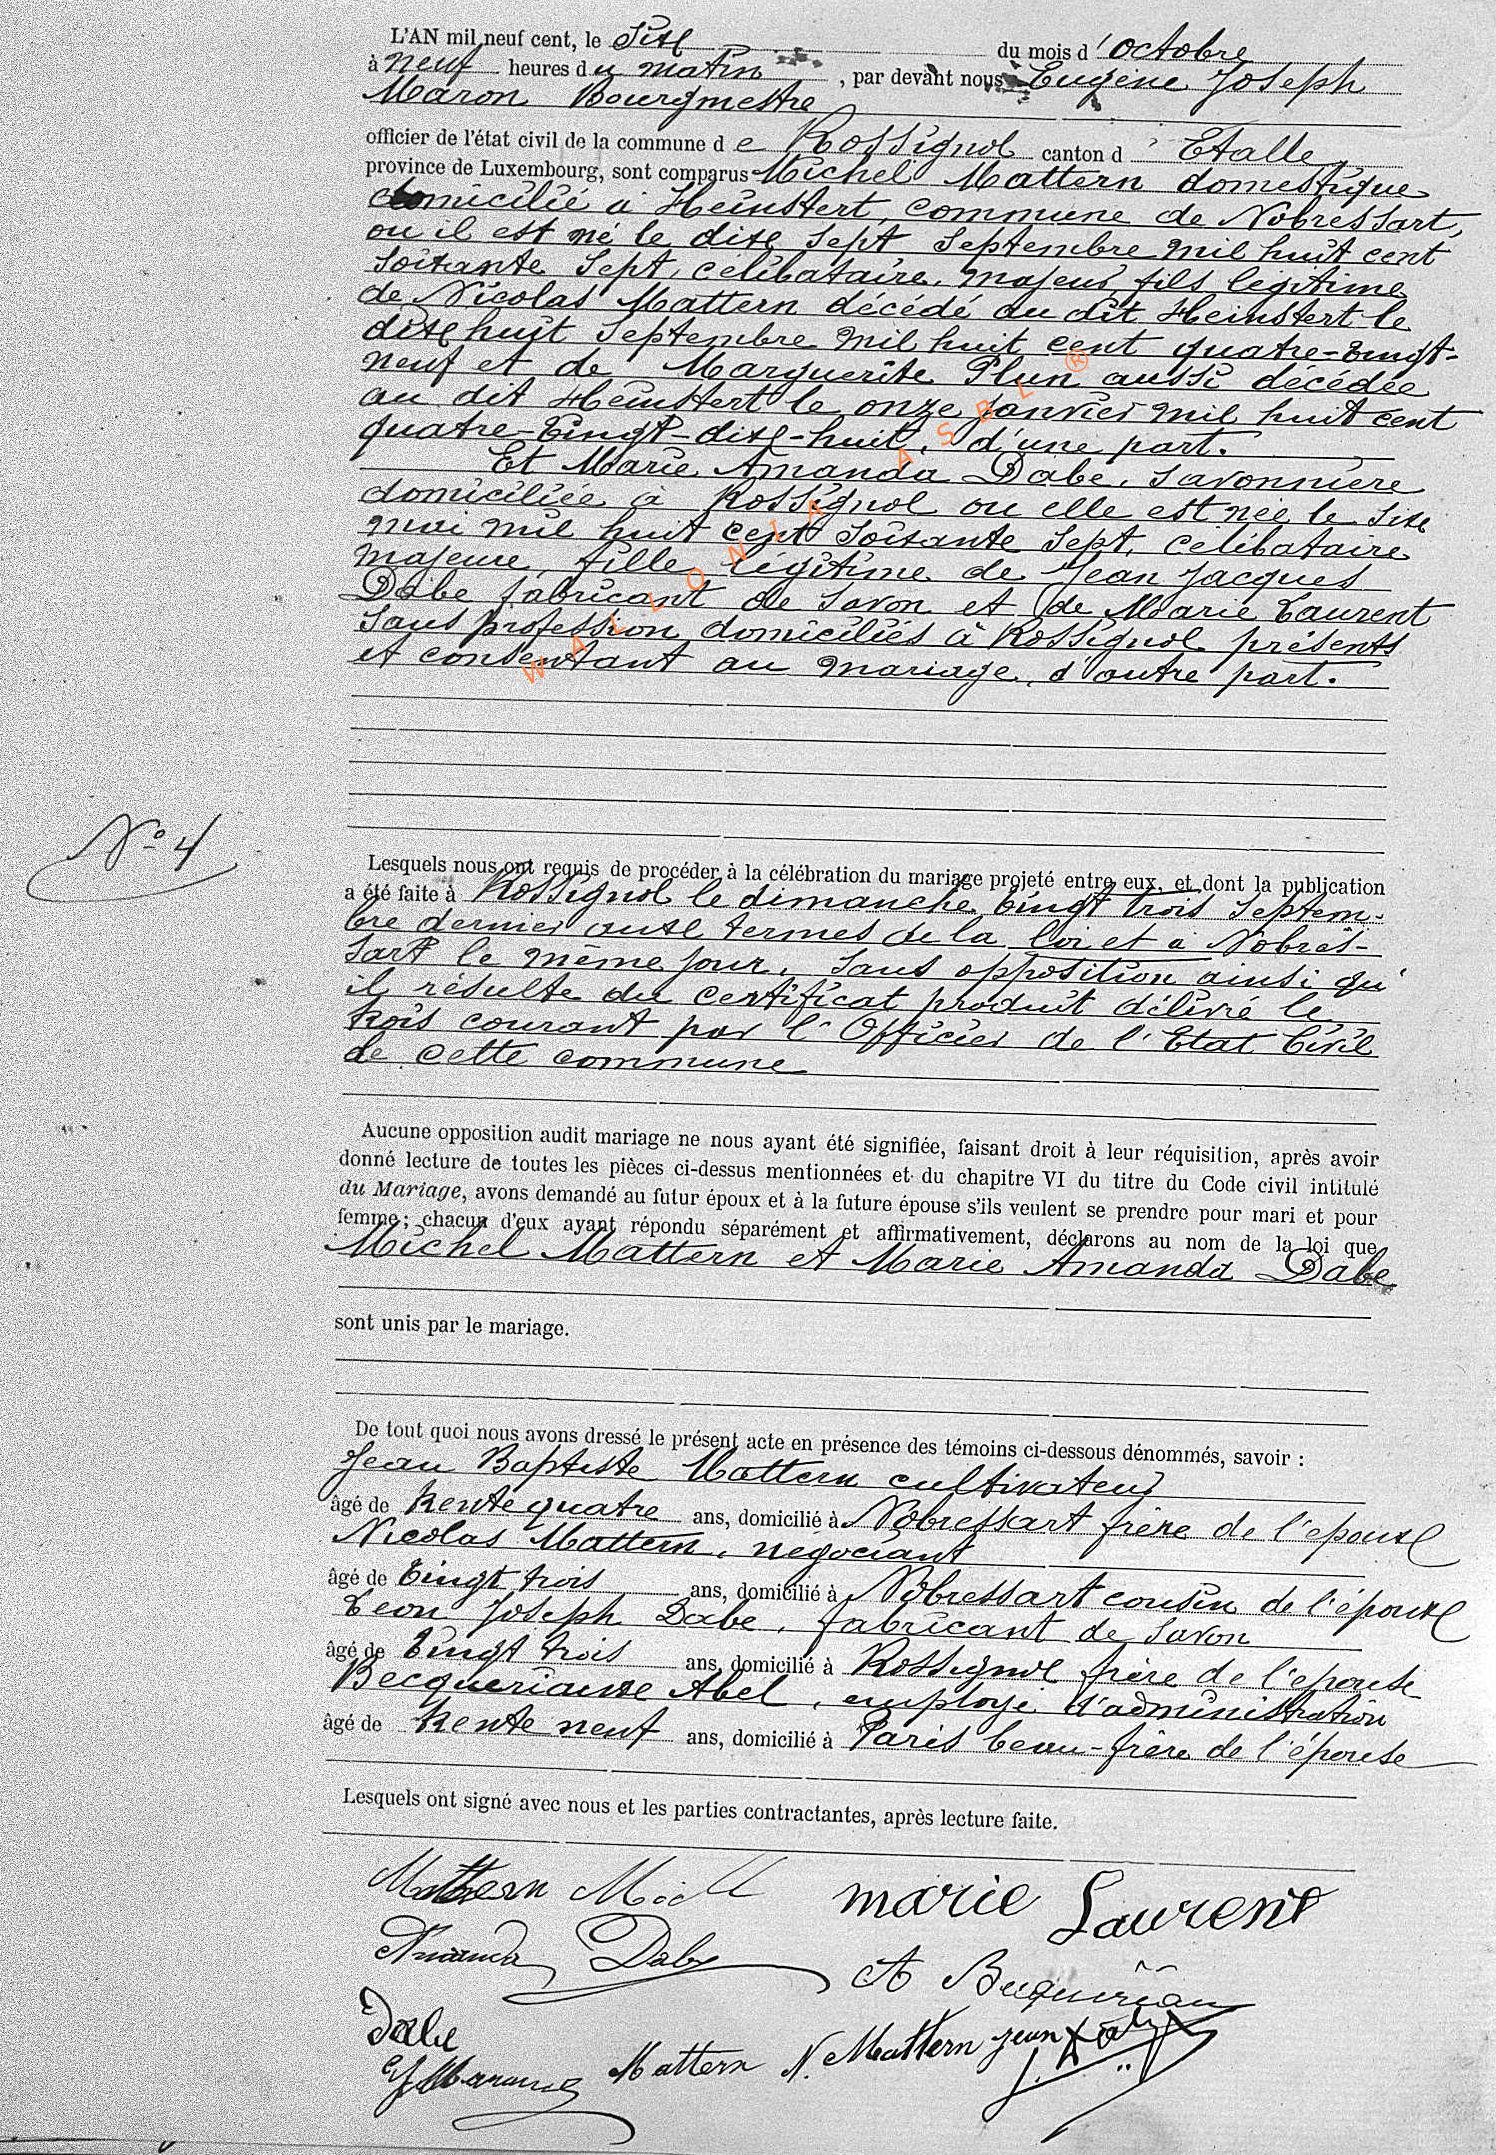 L'AN mil neuf cent, le Six du mois d'octobre
à neuf heures du matin, par devant nous Eugène Joseph
Maron Bourgmestre
officier de l'état civil de la commune de Rossignol canton d'Etalle,
province de Luxembourg, sont comparus Michel Mattern domestique
domicilié à Heinstert, commune de Nobressart,
ou il est né le dix sept Septembre mil huit cent
soixante sept, célibataire, majeur, fils légitime
de Nicolas Mattern décédé au dit Heinstert le
dix huit Septembre mil huit cent quatre-vingt-
neuf et de Marguerite Plun aussi décédée
au dit Heinstert le onze Janvier mil huit cent
quatre-vingt-dix-huit, d'une part.
Et Marie Amanda Dabe, Savonnière
domiciliée à Rossignol ou elle est née le Six
mai mil huit cent Soixante Sept, célibataire
majeure, fille légitime de Jean Jacques
Dabe fabricant de Savon et de Marie Laurent
Sans profession domiciliés à Rossignol présents
et consentant au mariage, d'autre part.
WALLONIA ASBL ®
N° 4
Lesquels nous ont requis de procéder à la célébration du mariage projeté entre eux, et dont la publication
a été faite à Rossignol le dimanche vingt trois Septem-
bre dernier aux termes de la loi et à Nobres-
sart le même jour, Sans opposition ainsi qu'
il résulte du certificat produit délivré le
trois courant par l'Officier de l'Etat Civil
de cette commune
Aucune opposition audit mariage ne nous ayant été signifiée, faisant droit à leur réquisition, après avoir
donné lecture de toutes les pièces ci-dessus mentionnées et du chapitre VI du titre du Code civil intitulé
du Mariage, avons demandé au futur époux et à la future épouse s'ils veulent se prendre pour mari et pour
femme; chacun d'eux ayant répondu séparément et affirmativement, déclarons au nom de la loi que
Michel Mattern et Marie Amanda Dabe
sont unis par le mariage.
De tout quoi nous avons dressé le présent acte en présence des témoins ci-dessous dénommés, savoir :
Jean Baptiste Mattern cultivateur
âgé de trente quatre ans, domicilié à Nobressart frère de l'époux
Nicolas Mattern, négociant
âgé de vingt trois ans, domicilié à Nobressart cousin de l'époux
Léon Joseph Dabe, fabricant de Savon
âgé de vingt trois ans, domicilié à Rossignol frère de l'épouse
Becqueriaux Abel, employé d'administration
âgé de trente neuf ans, domicilié à Paris beau-frère de l'épouse
Lesquels ont signé avec nous et les parties contractantes, après lecture faite.
Mattern Michel
marie Laurent
Amanda Dabe
A Becqueriau
Dabe
EJMaron
Mattern
N. Mattern
jean